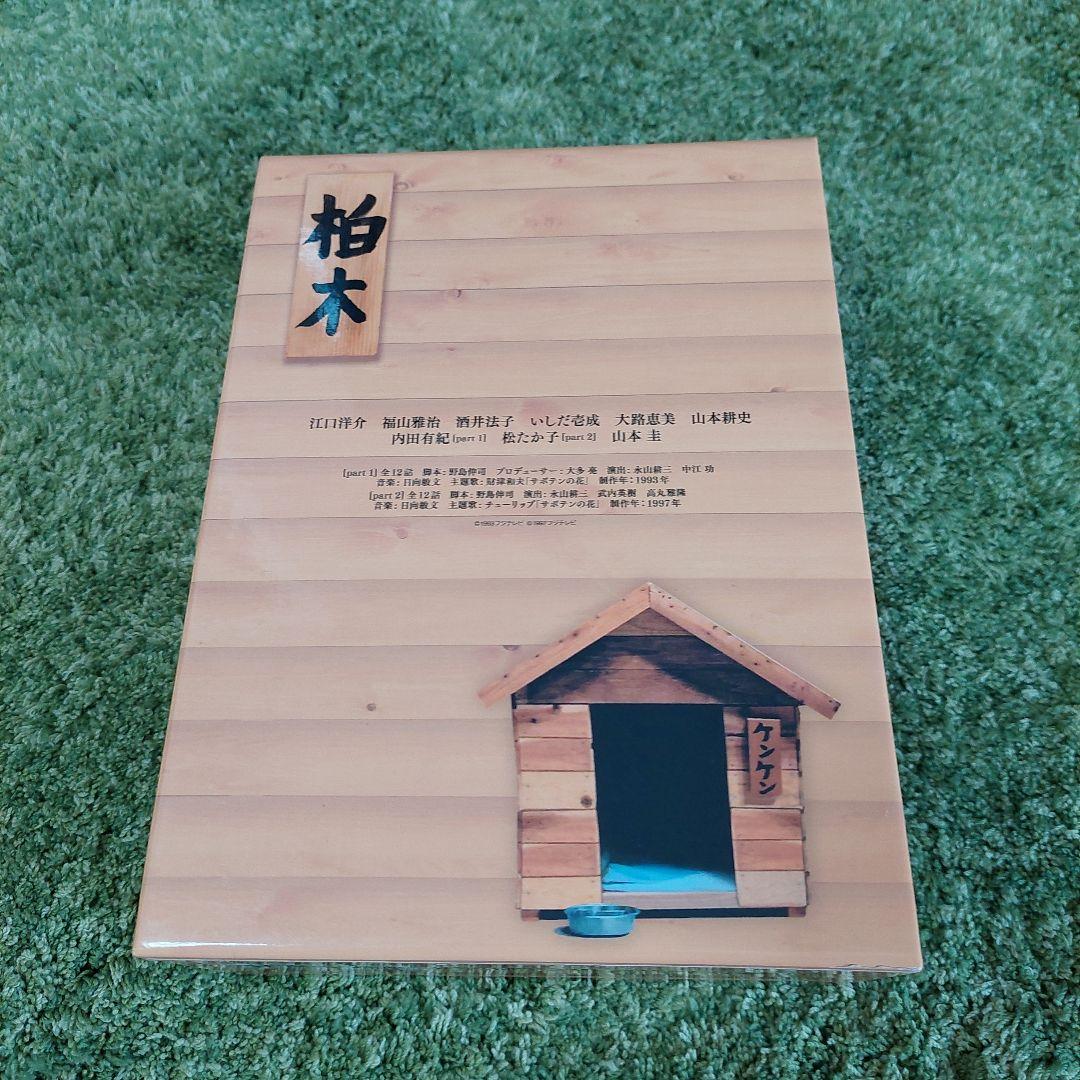 柏木
江口洋介 福山雅治 酒井法子 いしだ壱成 大路恵美 山本耕史
内田有紀[part 1] 松たか子[part 2] 山本 圭
[part 1]全12話 脚本:野島伸司 プロデューサー:大多 亮 演出:永山耕三 中江 功
音楽:日向敏文 主題歌:財津和夫「サボテンの花」 制作年:1993年
[part 2]全12話 脚本:野島伸司 演出:永山耕三 武内英樹 高丸雅隆
音楽:日向敏文 主題歌:チューリップ「サボテンの花」 制作年:1997年
©1993フジテレビ ©1997フジテレビ
ケンケン